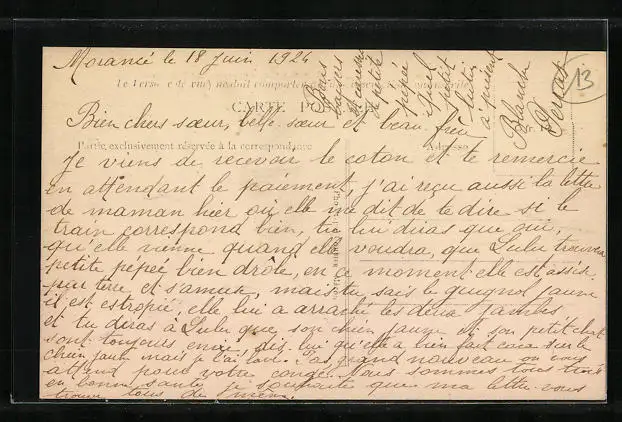 Morancé le 18 juin 1924
CARTE POSTALE
Bien chers sœur, belle sœur et beau frère
Partie exclusivement réservée à la correspondance
Adresse
Je viens de recevoir le coton et te remercie
en attendant le paiement, j'ai reçu aussi la lettre
de maman hier où elle me dit de te dire si le
train correspond bien, tu lui diras que oui,
qu'elle vienne quand elle voudra, que Lulu trouvera
petite pépée bien drôle, en ce moment elle est assise
par terre et s'amuse, mais tu sais le guignol jaune
il est estropié, elle lui a arraché les deux jambes
et tu diras à Lulu que son chien jaune et son petit chat
sont toujours dis lui qu'elle a bien fait caca sur le
chien jaune mais je l'ai lavé. Pas grand nouveau on vous
attend pour votre congé. Nous sommes tous trois
en bonne santé je souhaite que ma lettre vous
trouve tous de même.
Bons
baisers
et caresses
petite
pépée
petit
à présent
Blanche
13